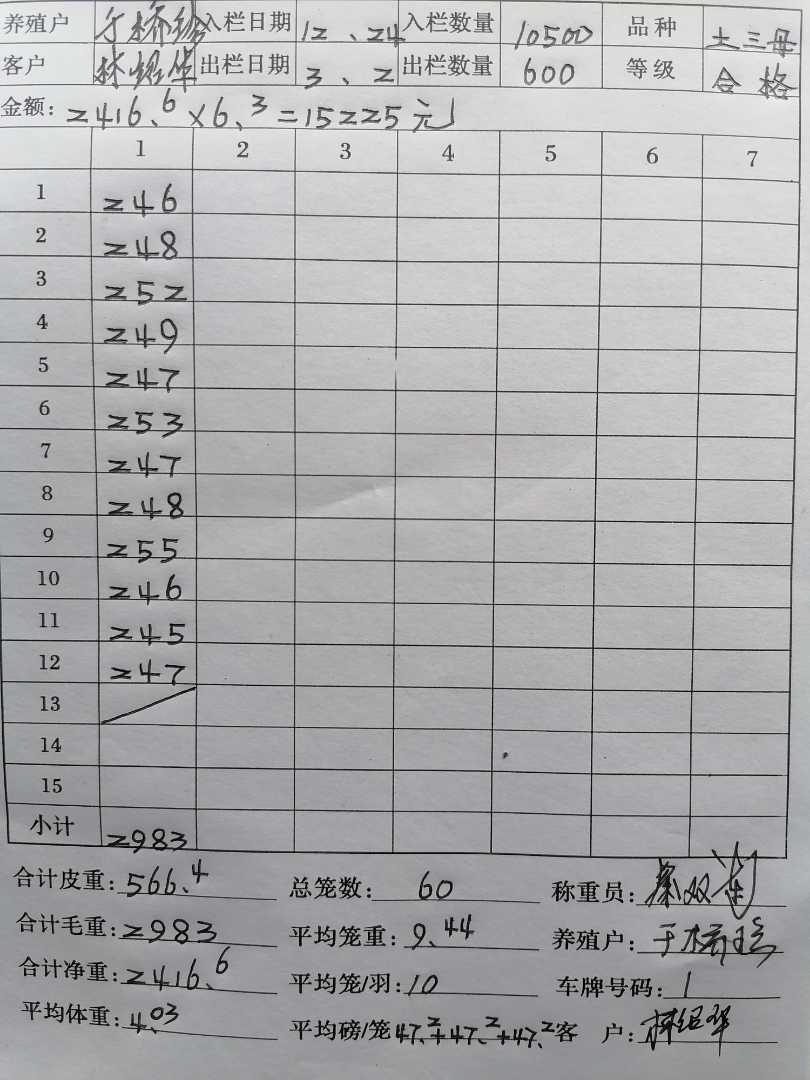 养殖户 于桥 入栏日期 12、24 入栏数量 10500 品种 土三母
客户 林绍华 出栏日期 3、2 出栏数量 600 等级 合格
金额: 2416.6×6.3=15225元
1 2 3 4 5 6 7
1 246
2 248
3 252
4 249
5 247
6 253
7 247
8 248
9 255
10 246
11 245
12 247
13
14
15
小计 2983
合计皮重: 566.4 总笼数: 60 称重员: 双
合计毛重: 2983 平均笼重: 9.44 养殖户: 于桥
合计净重: 2416.6 平均笼/羽: 10 车牌号码: 1
平均体重: 4.03 平均磅/笼 47.2+47.2+47.2 客户: 林绍华